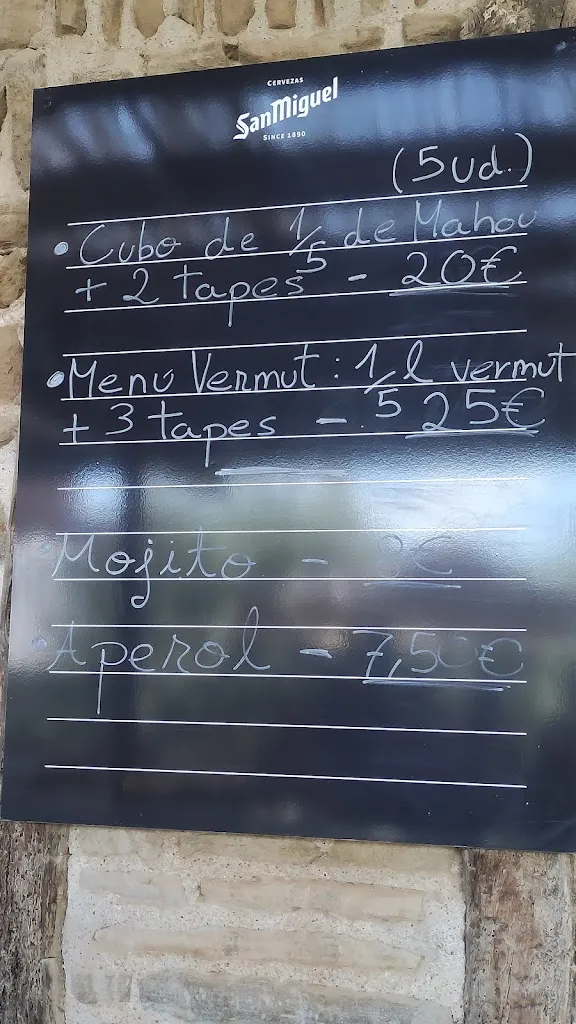 CERVEZAS
SanMiguel
SINCE 1890
(5ud.)
• Cubo de 1/5 de Mahou
+ 2 tapes - 20€
• Menú Vermut: 1/5 l vermut
+ 3 tapes - 25€
• Mojito - 8€
• Aperol - 7,50€